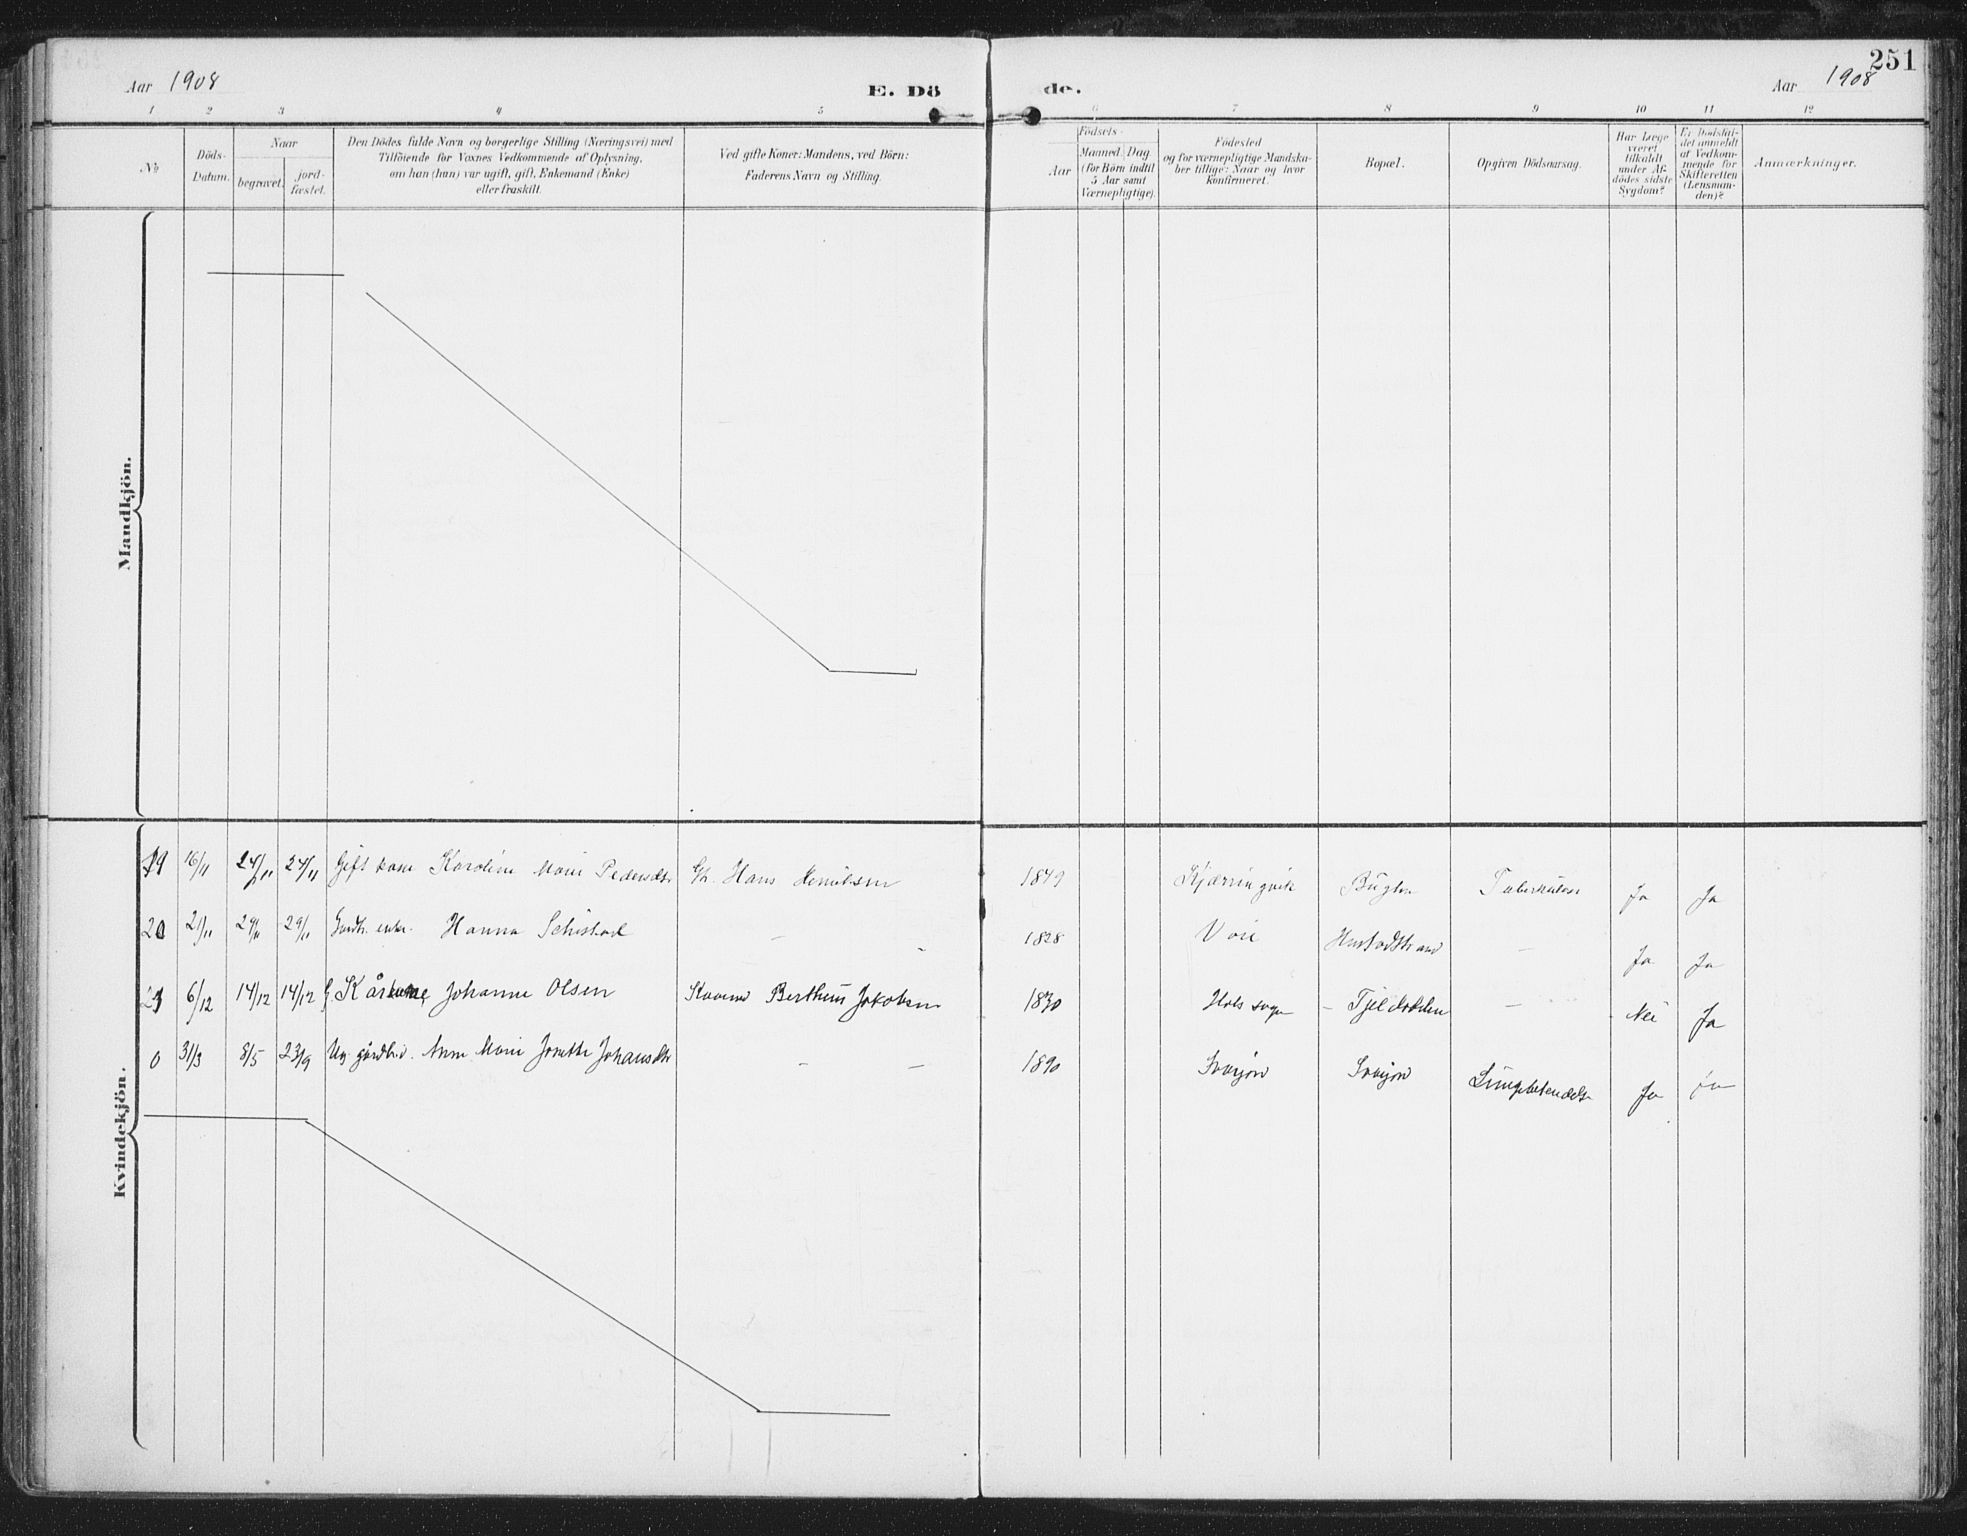 251
Aar 1908
E. Dö
de.
Aar 1908
1 2 3 4 5 6 7 8 9 10 11 12
No
Döds-
Datum.
Naar
begravet.
jord-
fæstet.
Den Dödes fulde Navn og borgerlige Stilling (Næringsvei) med
Tilföiende for Voxnes Vedkommende af Oplysning,
om han (hun) var ugift, gift, Enkemand (Enke)
eller fraskilt.
Ved gifte Koner: Mandens, ved Börn:
Faderens Navn og Stilling.
Födsels-
Aar
Maaned. Dag
(for Börn indtil
5 Aar samt
Værnepligtige).
Födested
og for værnepligtige Mandska-
ber tillige: Naar og hvor
konfirmeret.
Bopæl.
Opgiven Dödsaarsag.
Har Læge
været
tilkaldt
under Af-
dödes sidste
Sygdom?
Er Dödsfal-
det anmeldt
af Vedkom-
mende for
Skifteretten
(Lensman-
den)?
Anmærkninger.
Mandkjön.
Kvindekjön.
19 16/11 24/11 24/11 Gift kone Karoline Marie Pedersdtr Hans 1849 Kjærringvik Tuberkulose Ja Ja
20 21/11 29/11 29/11 enke. Hanna 1828 — Ja Ja
21 6/12 14/12 14/12 G. Johanne Olsen Jakobsen 1830 Hols sogn — Nei Ja
0 31/3 8/5 23/9 Ug. Anne Marie Johansdtr — — 1890 Lungebetændelse Ja Ja